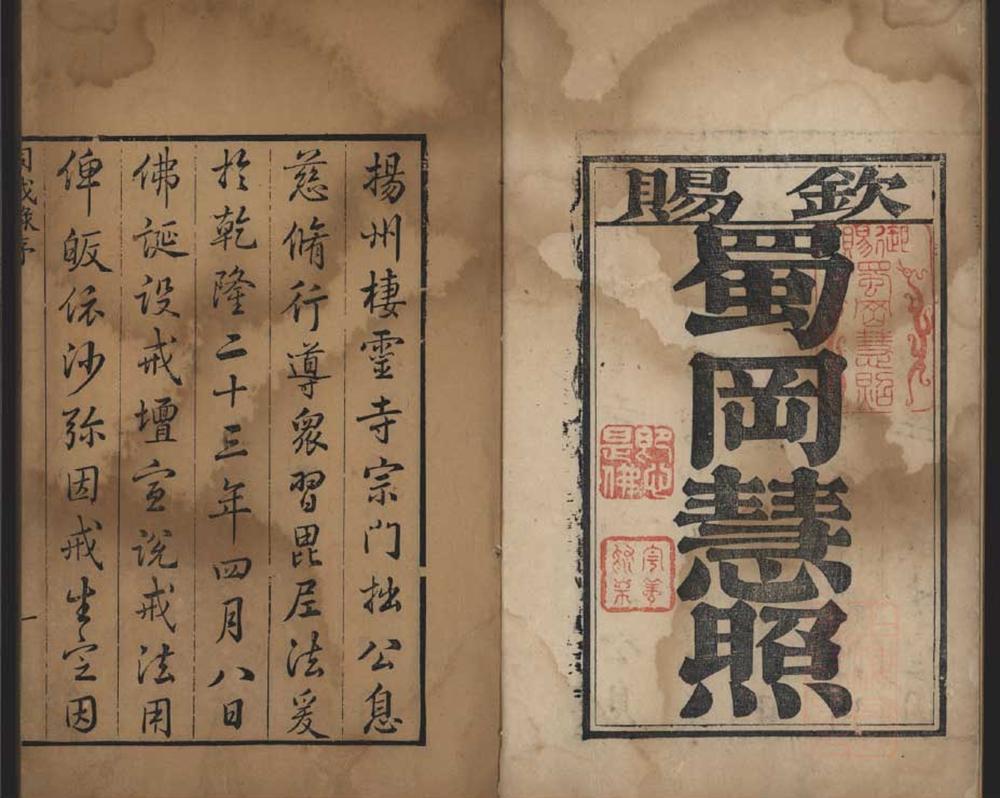 欽賜
蜀岡慧照
御賜
蜀岡慧照
即心
是佛
揚州棲靈寺宗門拙公息
慈脩行導衆習毘尼法爰
於乾隆二十三年四月八日
佛誕設戒壇宣說戒法用
俾皈依沙弥因戒生定因
同戒錄序
一